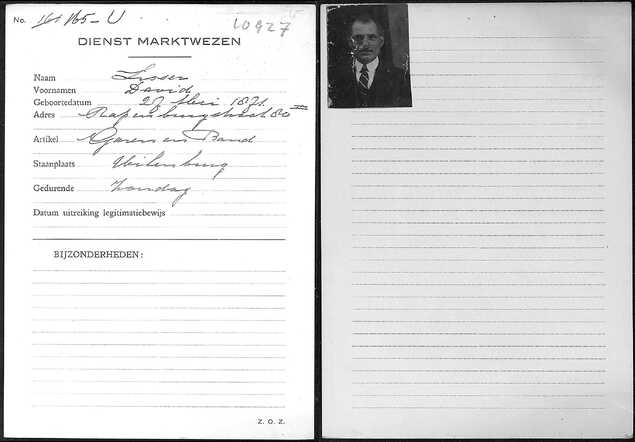 No. 165-U
10927
DIENST MARKTWEZEN
Naam Lisser
Voornamen David
Geboortedatum 28 Mei 1871
Adres Rapenburgstraat 80 III
Artikel Garen en Band
Staanplaats Uilenburg
Gedurende Zondag
Datum uitreiking legitimatiebewijs
BIJZONDERHEDEN:
Z. O. Z.